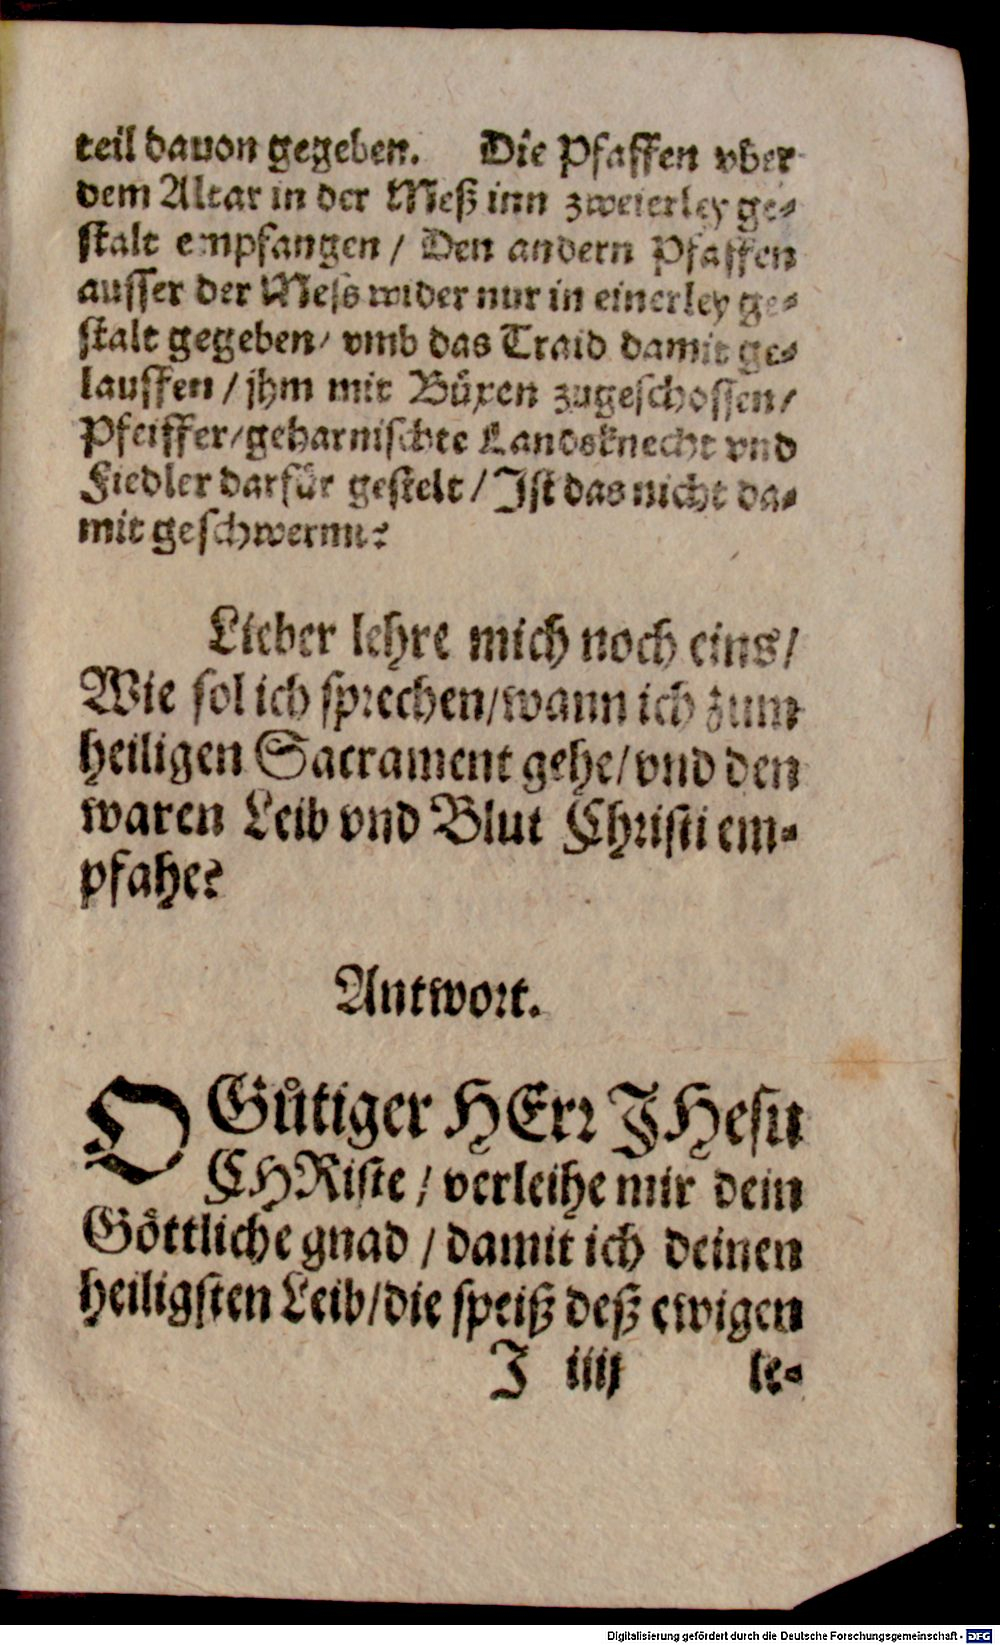 teil dauon gegeben. Die Pfaffen vber
dem Altar in der Meß inn zweierley ge-
stalt empfangen / Den andern Pfaffen
ausser der Mess wider nur in einerley ge-
stalt gegeben / vmb das Traid damit ge-
lauffen / jhm mit Büxen zugeschossen /
Pfeiffer / geharnischte Landsknecht vnd
Fiedler darfür gestelt / Ist das nicht da-
mit geschwermt?
Lieber lehre mich noch eins /
Wie sol ich sprechen / wann ich zum
heiligen Sacrament gehe / vnd den
waren Leib vnd Blut Christi em-
pfahe?
Antwort.
O Gůtiger HErr JHesu
CHRiste / verleihe mir dein
Göttliche gnad / damit ich deinen
heiligsten Leib / die speiß deß ewigen
J iiij le-
Digitalisierung gefördert durch die Deutsche Forschungsgemeinschaft - DFG